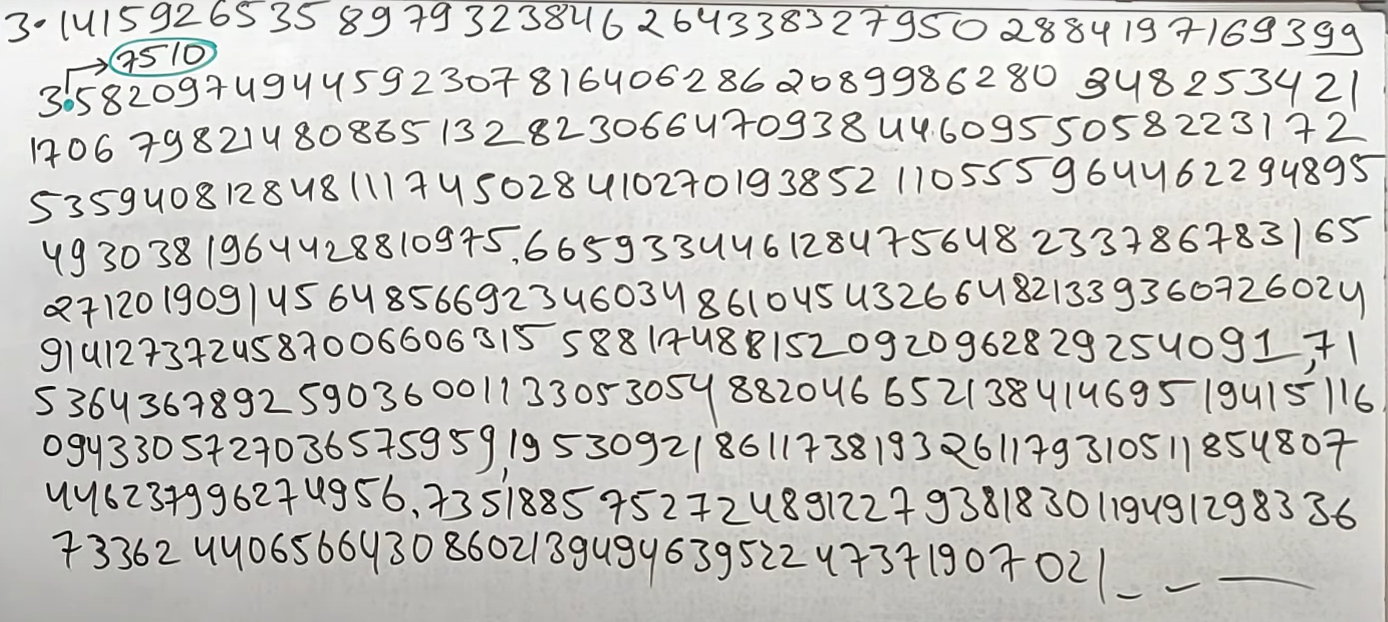 3.141592653589793238462643383279502884197169399
7510
3.582097494459230781640628620899862803482534 21
1706 79821480865132 8230664709384460955058223172
53594081284811174502841027019385211055596446229 4895
4930381964428810975,665933446128475648233786783165
271201909145648566923460348610454326648213393607 26024
914127372458700660631558817488152092096282925409 1,71
536436789259036001133053054882046652138414695194 15116
094330572703657595919530921861173819326117931051 1854807
446237996274956,73518857527248912279381830119491298336
73362440656643086021394946395224737190702 1_ _ —